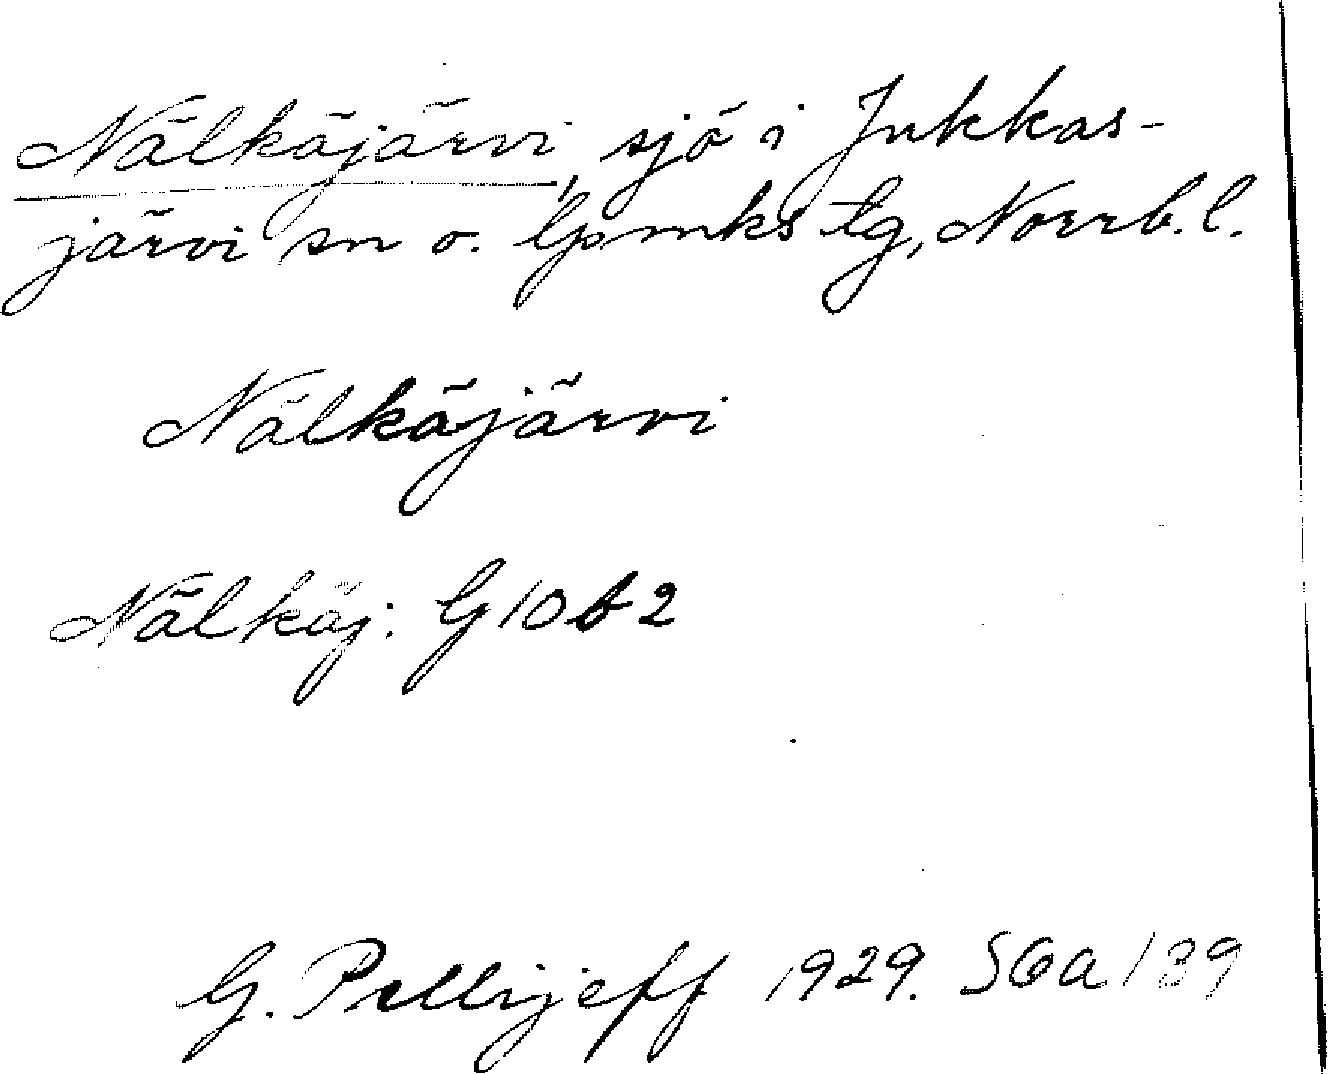 Nälkäjärvi, sjö i Jukkas-
järvi sn o. lpmks tg, Norrb. l.
Nälkäjärvi
Nälkäj: G 10 b 2
G. Pellijeff 1929. SGa 139